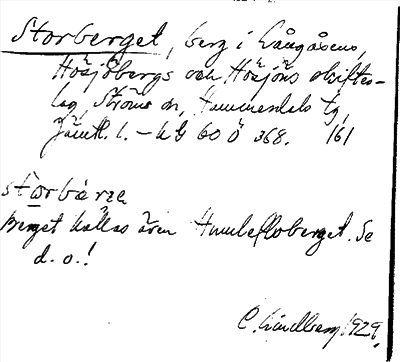 Storberget, berg i Långåsens,
Hösjöbergs och Hösjöns skiftes-
lag, Ströms sn, Hammerdals tg,
Jämtl. l. – kbl 60 Ö 368. 161
storbærze
Berget kallas även Humlefloberget. Se
d. o.!
C. Lindberg 1929.